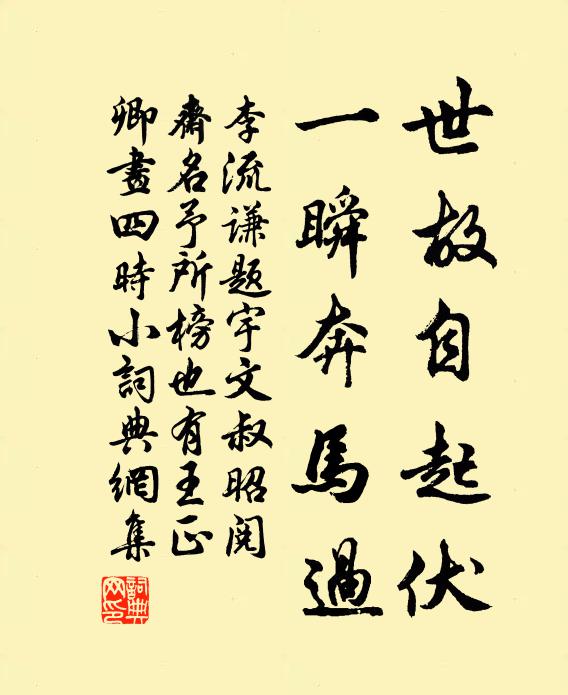 世故自起伏
一瞬奔馬過
李流謙題宇文叔昭閱
齋名予所榜也有王正
卿畫四時小詞典網集
詞典网印